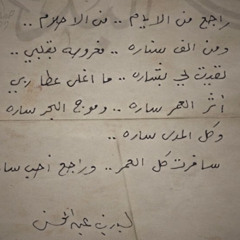 راجع من الايام .. من الاحلام ..
ومن الف سناره .. مغروسه بقلبي ..
لقيت لي بشاره .. ما اغلى عطا ربي
أثر العمر ساره .. وموج البحر ساره
وكل المدن ساره ..
سافرت كل العمر .. وراجع أحب سا
لبدر بن عبد المحسن